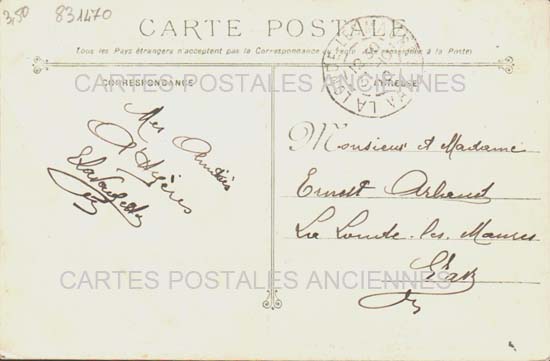 3,50 831470
CARTE POSTALE
Tous les Pays étrangers n'acceptent pas la Correspondance au recto. (Se renseigner à la Poste)
CORRESPONDANCE
ADRESSE
CARTES POSTALES ANCIENNES
Mes Amitiés
d'Hyères
Monsieur et Madame
Ernest Arbaud
La Londe-les-Maures
Var
CARTES POSTALES ANCIENNES